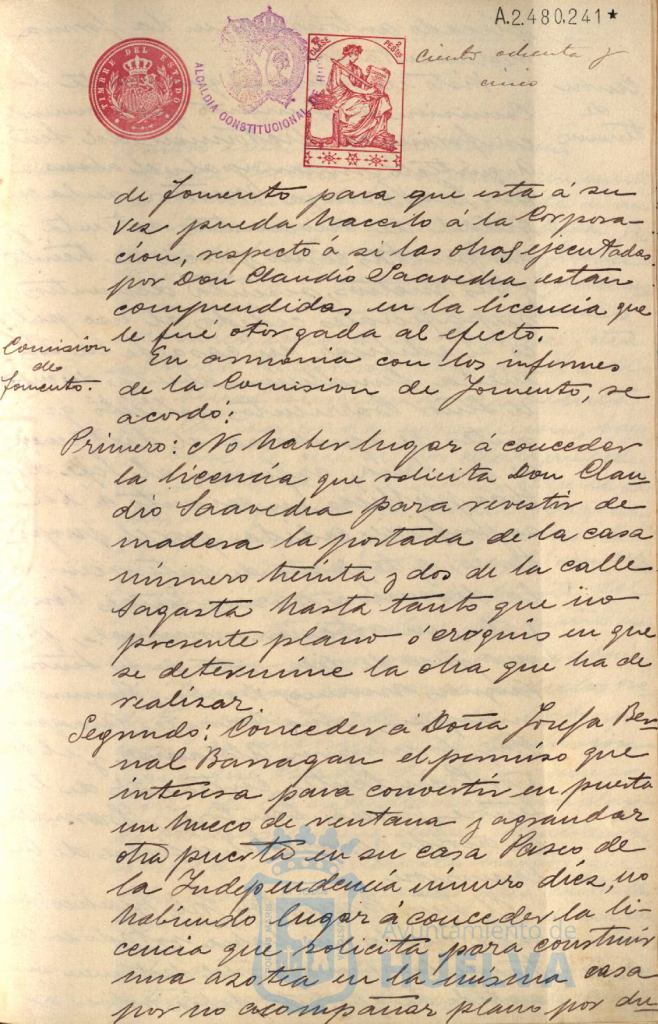 A.2.480.241★
TIMBRE DEL ESTADO
ALCALDIA CONSTITUCIONAL DE
CLASE
PESETAS
ciento ochenta y
cinco
de Fomento para que esta á su
vez pueda hacerlo á la Corpora-
cion, respecto á si las obras ejecutadas
por Don Claudio Saavedra estan
comprendidas en la licencia que
le fué otorgada al efecto.
Comision
de
Fomento.
En armonia con los informes
de la Comision de Fomento, se
acordó:
Primero: No haber lugar á conceder
la licencia que solicita Don Clau-
dio Saavedra para revestir de
madera la portada de la casa
número treinta y dos de la calle
Sagasta hasta tanto que no
presente plano ó cróquis en que
se determine la obra que ha de
realizar.
Segundo: Conceder á Doña Josefa Ber-
nal Barragan el permiso que
interesa para convertir en puerta
un hueco de ventana y agrandar
otra puerta en su casa Paseo de
la Independencia número diez, no
habiendo lugar á conceder la li-
cencia que solicita para construir
una azotea en la misma casa
por no acompañar plano por du-
Ayuntamiento de
HUELVA